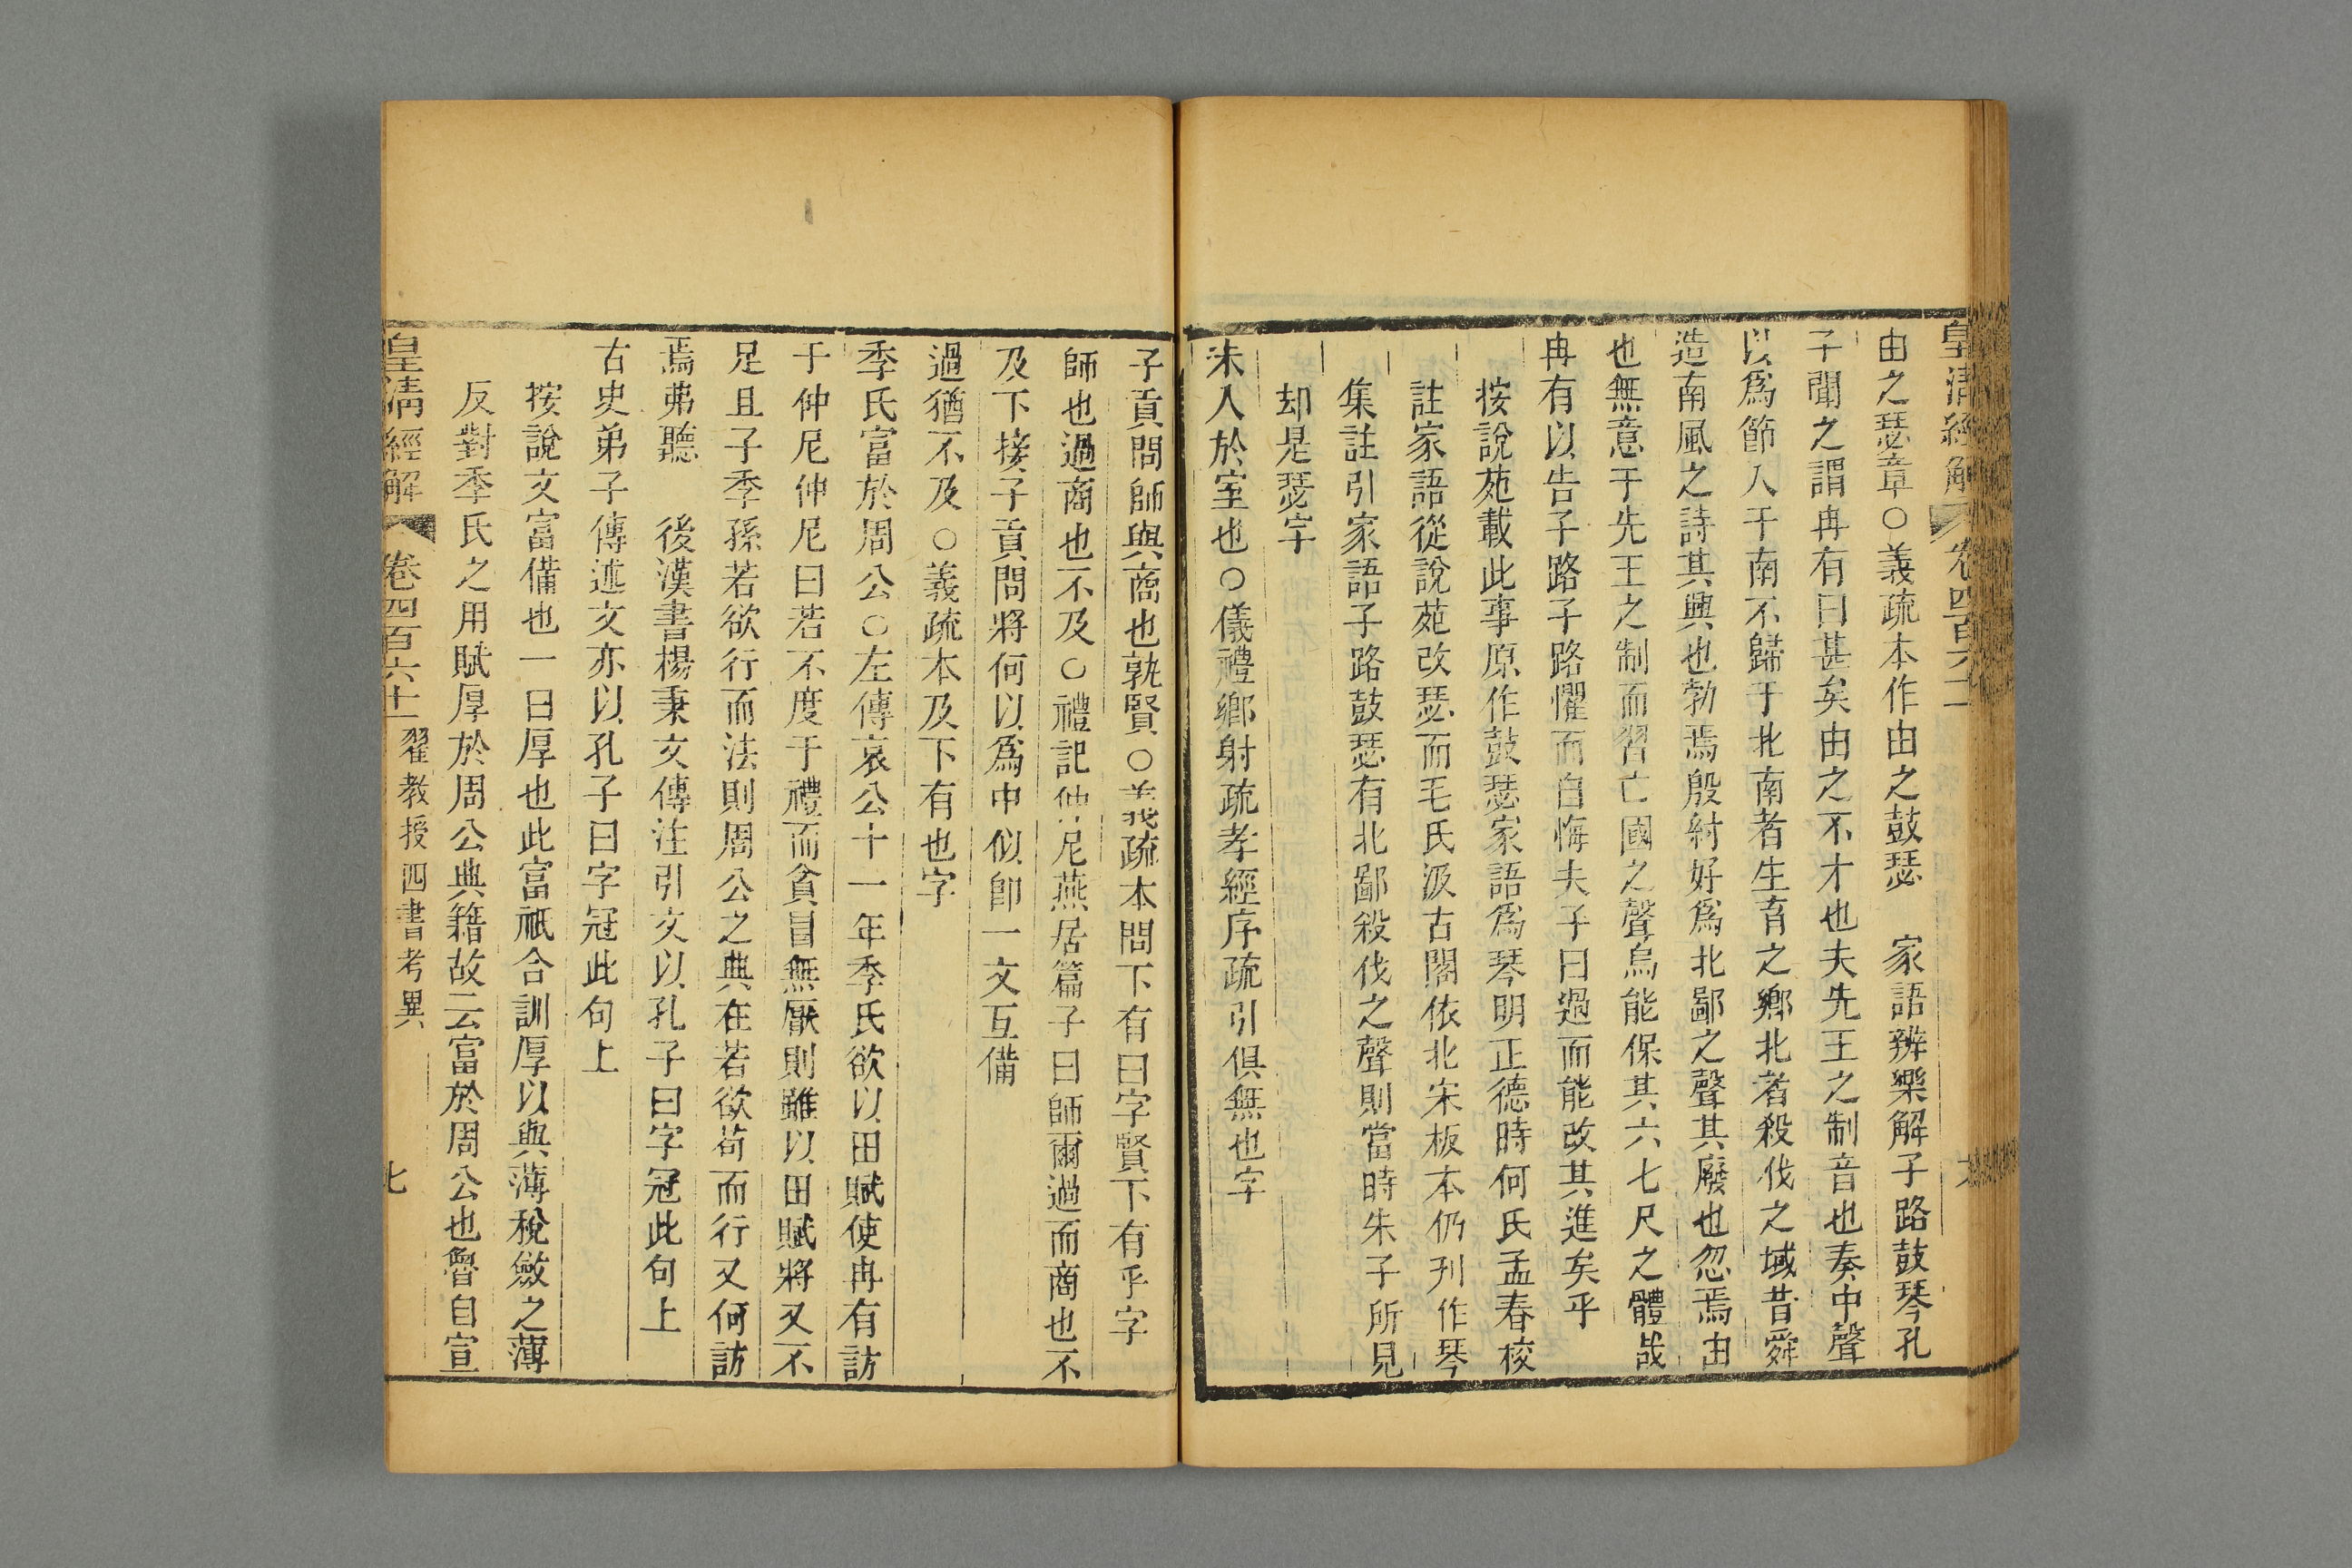 皇清經解
卷四百六十二
由之瑟章○義疏本作由之鼓瑟　家語辨樂解子路鼓琴孔
子聞之謂冉有曰甚矣由之不才也夫先王之制音也奏中聲
以爲節入于南不歸于北南者生育之鄉北者殺伐之域昔舜
造南風之詩其興也勃焉殷紂好爲北鄙之聲其廢也忽焉由
也無意于先王之制而習亡國之聲烏能保其六七尺之體哉
冉有以告子路子路懼而自悔夫子曰過而能改其進矣乎
按說苑載此事原作鼓瑟家語爲琴明正德時何氏孟春校
註家語從說苑改瑟而毛氏汲古閣依北宋板本仍刋作琴
集註引家語子路鼓瑟有北鄙殺伐之聲則當時朱子所見
却是瑟字
未入於室也○儀禮鄉射疏孝經序疏引俱無也字
子貢問師與商也孰賢○義疏本問下有曰字賢下有乎字
師也過商也不及○禮記仲尼燕居篇子曰師爾過而商也不
及下接子貢問將何以爲中似卽一文互備
過猶不及○義疏本及下有也字
季氏富於周公○左傳哀公十一年季氏欲以田賦使冉有訪
于仲尼仲尼曰若不度于禮而貪冒無厭則雖以田賦將又不
足且子季孫若欲行而法則周公之典在若欲苟而行又何訪
焉弗聽　後漢書楊秉文傳注引文以孔子曰字冠此句上
古史弟子傳述文亦以孔子曰字冠此句上
按說文富備也一曰厚也此富祇合訓厚以與薄稅斂之薄
反對季氏之用賦厚於周公典籍故云富於周公也魯自宣
皇清經解
卷四百六十二
翟教授四書考異
七